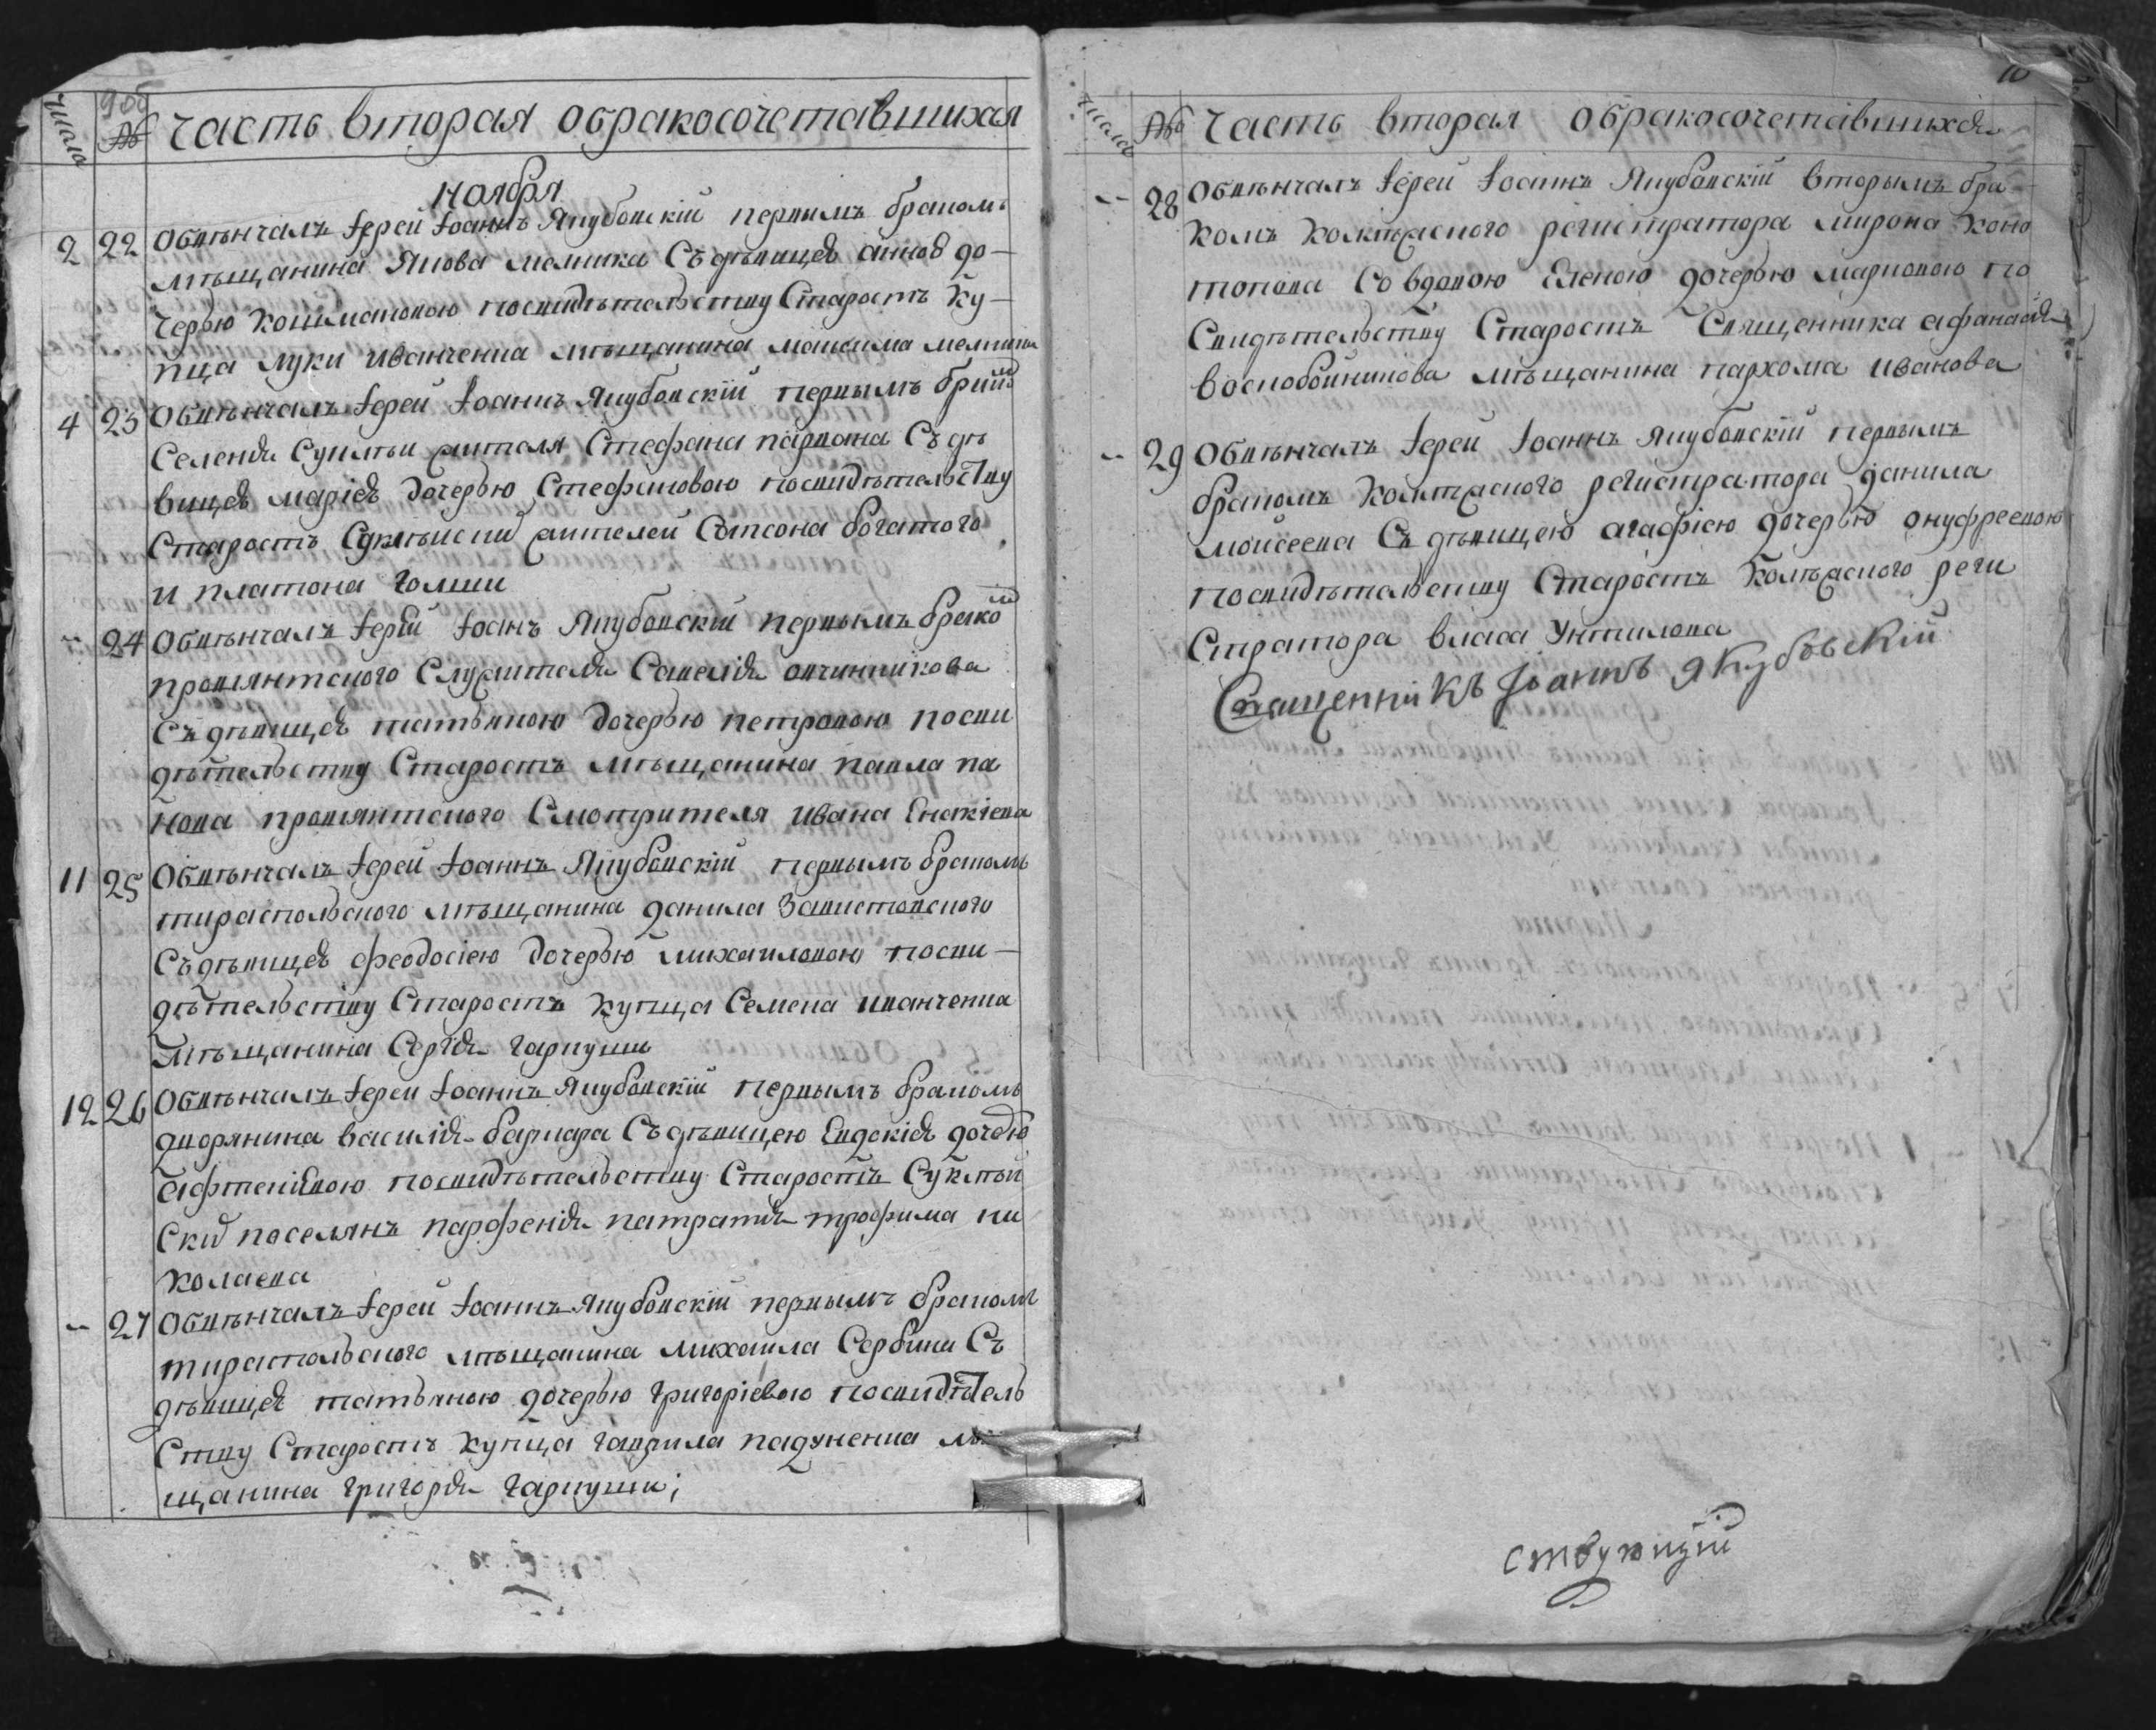 9 об
числа № Часть вторая о бракосочетавшихся
ноября
2 22 Обвѣнчалъ Іерей Іоаннъ Якубовскій первымъ бракомъ
мѣщанина Якова мелника Съ дѣвицей анной до-
черью Кошматовою по свидѣтельству Старостъ Ку-
пца луки иванченка мѣщанина максима мелника
4 23 Обвѣнчалъ Іерей Іоаннъ Якубовскій первымъ брако
Селенія Суклеи жителя Стефана Съ дѣ
вицей маріей дочерью Стефановою по свидѣтельству
Старостъ Суклейскихъ жителей Сомсона богатого
и платона голши
-- 24 Обвѣнчалъ Іерей Іоанъ Якубовскій первымъ брако
провіянтского Служителя Савелія овчинникова
Съ дѣвицей татьяною дочерью петровою по сви
дѣтельству Старостъ мѣщанина павла па
нова провіянтского Смотрителя ивана Енакіева
11 25 Обвѣнчалъ Іерей Іоаннъ Якубовскій первымъ бракомъ
тираспольского мѣщанина данила Завистовского
Съ дѣвицей феодосіею дочерью михаиловою по сви-
дѣтельству Старостъ купца Семена иванченка
мѣщанина Сергія гаркуши
12 26 Обвѣнчалъ Іерей Іоаннъ Якубовскій первымъ бракомъ
дворянина василія Съ дѣвицею Евдокіей дочерью
афтеніевою по свидѣтельству Старостъ Суклѣй
скихъ поселянъ парфенія трофима ни
колаева
-- 27 Обвѣнчалъ Іерей Іоаннъ Якубовскій первымъ бракомъ
тираспольского мѣщанина михаила Сербина Съ
дѣвицей татьяною дочерью григоріевою по свидѣтель
ству Старостъ купца гаврила падуненка мѣ
щанина григорія гаркуши;
10
числа № Часть вторая о бракосочетавшихся
-- 28 Обвѣнчалъ Іерей Іоаннъ Якубовскій вторымъ бра
комъ Колежского регистратора мирона Коно
топова Со вдовою Еленою дочерью марковою по
Свидѣтельству Старостъ Священника афанасія
воскобойникова мѣщанина пархома иванова
-- 29 Обвѣнчалъ Іерей Іоаннъ Якубовскій первымъ
бракомъ Колежского регистратора данила
моисеева Съ дѣвицею агафіею дочерью онуфреевою
по свидѣтельству Старостъ Колежского реги
Стратора власа Унтилова
Священникъ Іоаннъ Якубовскій
ствующій